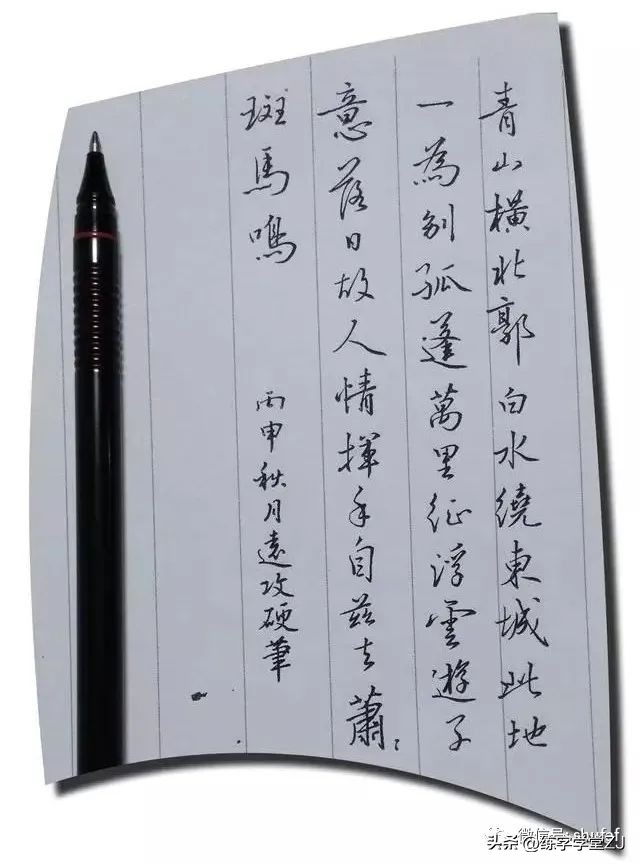 青山橫北郭白水繞東城此地
一為別孤蓬萬里征浮雲遊子
意落日故人情揮手自茲去蕭〻
斑馬鳴
丙申秋月遠攻硬筆
微信号: shufaf
头条@练字学堂ZJ